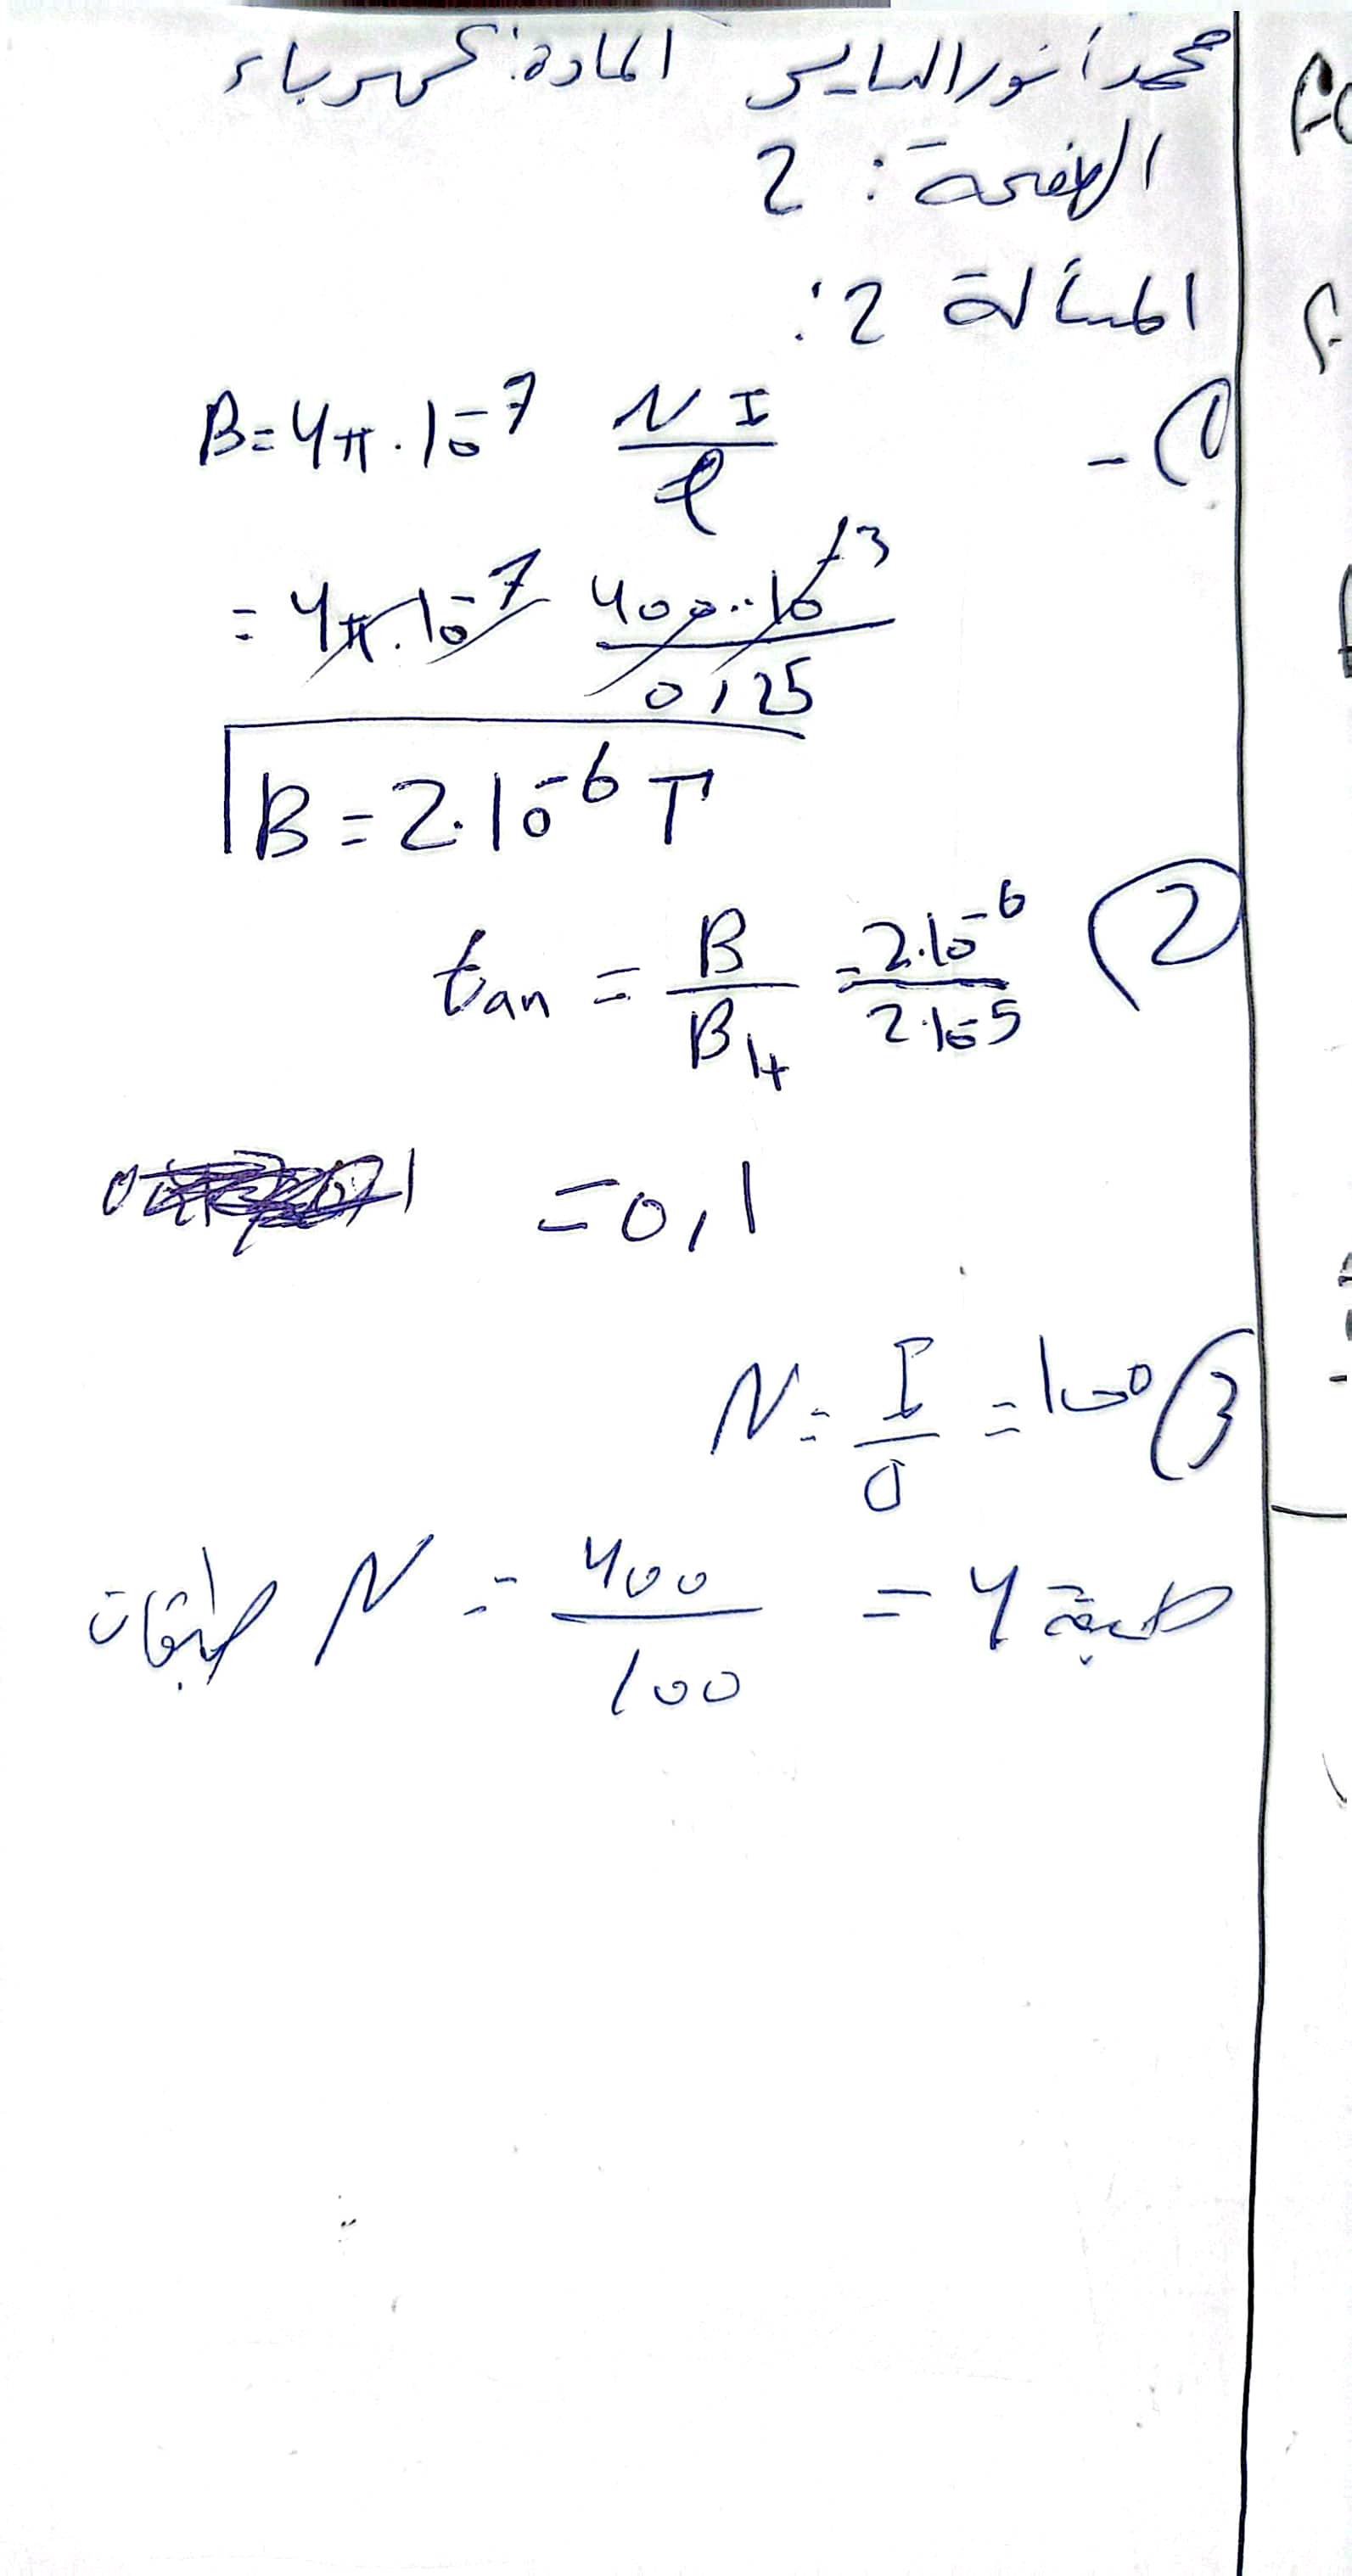 محمد أنور السايس المادة: كهرباء
الصفحة: 2
المسألة 2:
1) - B = 4π.10^-7 NI/ℓ
= 4π.10^-7 400.10^-3/0,25
B = 2.10^-6 T
2) tan = B/BH = 2.10^-6/2.10^-5
= 0,1
3) N = I/d = 100
طبقات N = 400/100 = 4 طبقة